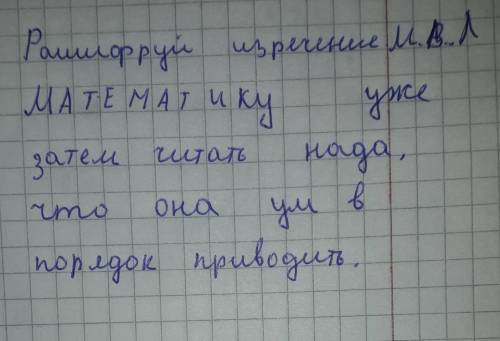 Рашифруй изречение М.В.Л
МАТЕМАТИКУ уже
затем читать нада,
что она ум в
порядок приводить.